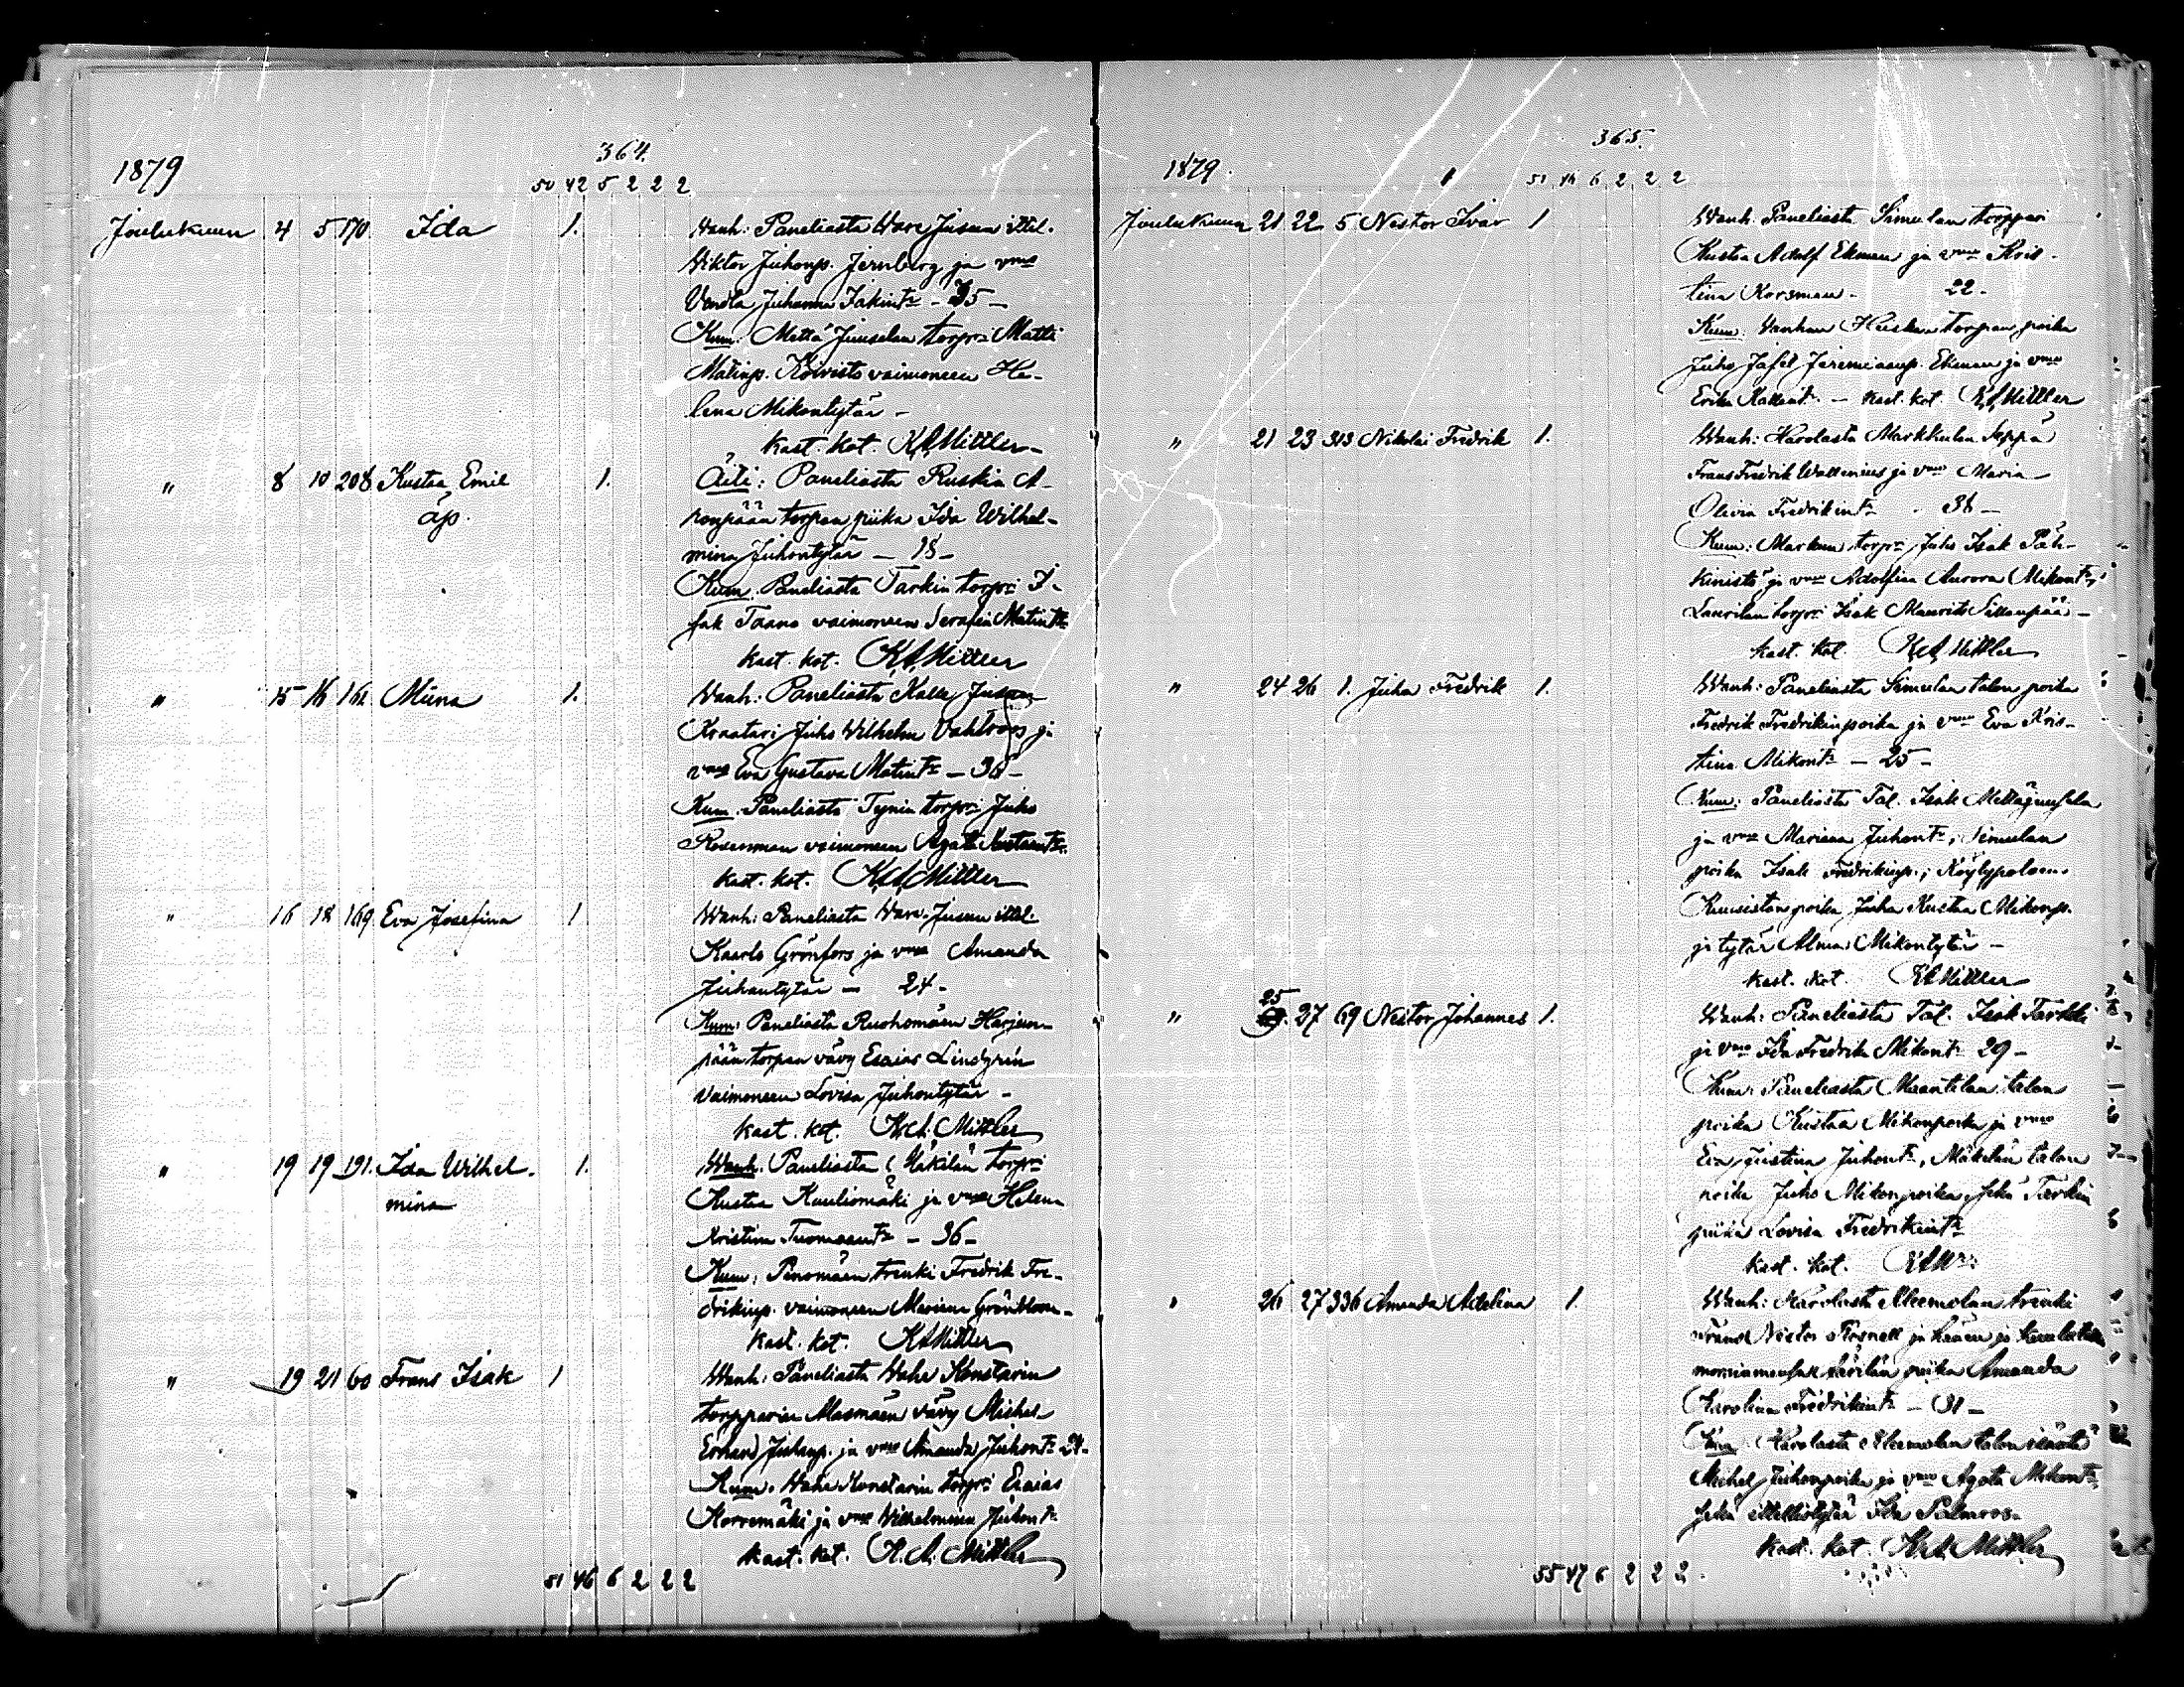 364.
1879
50 42 5 2 2 2
Joulukuun 4 5 170. Ida 1. Wanh: Paneliasta Ware Juusen ittel.
Wiktor Juhonp. Jernberg ja vmo
Vendla Juhanna Isakintr - 35 -
Kum. Mettä Juuselan torpri Matti
Matinp. Koivisto vaimoneen He-
lena Mikontytär -
Kast. kot. K.A. Mittler -
" 8 10 208. Kustaa Emil 1. Äiti: Paneliasta Ruskin A-
äp.
ronpään torpan piika Ida Wilhel-
mina Juhontytär - 18 -
Kum. Paneliasta Tarkin torpri I-
sak Taano vaimoneen Serafia Matintr
Kast. kot. K.A. Mittler
" 15 16 161. Miina 1. Wanh: Paneliasta Kalle Juusan
Kraatari Juho Wilhelm Vahlroos ja
vmo Eva Gustava Matintr - 36 -
Kum. Paneliasta Tynin torpri Juho
Rosenman vaimoneen Agata Kustaantr.
Kast. kot. K.A. Mittler
" 16 18 169. Eva Josefina 1. Wanh: Paneliasta Ware Juusen ittel.
Kaarlo Grönfors ja vmo Amanda
Juhontytär - 24 -
Kum: Paneliasta Ruohomäen Harjun-
pään torpan vävy Esaias Lindgrén
vaimoneen Lovisa Juhontytär -
Kast. kot. K.A. Mittler
" 19 19 191. Ida Wilhel- 1. Wanh. Paneliasta Mäkilän torpri
mina
Kustaa Kuuliomäki ja vmo Helena
Kristina Tuomaantr - 36 -
Kum: Penomäen trenki Fredrik Fre-
drikinp. vaimoneen Mariana Grönblom -
Kast. kot. K.A. Mittler
" 19 21 60 Frans Isak 1 Wanh: Paneliasta Wähä Konstarin
torpparin Masmäen vävy Mishel
Erland Juhanp. ja vmo Amanda Juhontr 24 -
Kum. Wähä Konstarin torpri Esaias
Korvemäki ja vmo Wilhelmina Juhontr
Kast. kot. K.A. Mittler
51 46 6 2 2 2
365.
1879.
51 46 6 2 2 2
Joulukuun 21 22 5 Nestor Ivar 1 Wanh. Paneliasta Simulan torppari
Kustaa Adolf Ekman ja vmo Kris-
tina Korsman - 22 -
Kum. Vanhan Heiskan torpan poika
Juho Jafet Jeremiaanp. Ekman ja vmo
Erika Kallentr. - Kast. kot. K.A. Mittler
" 21 23 313 Nikolai Fredrik 1. Wanh: Harolasta Markkulan Seppä
Frans Fredrik Wallenius ja vmo Maria
Olivia Fredrikintr - 38 -
Kum: Markun torpri Juho Isak Päh-
kinistö ja vmo Adolfina Aurora Mikontr,
Laurilan torpri Isak Maurits Sillanpää -
Kast. kot. K.A. Mittler
" 24 26 1. Juha Fredrik 1. Wanh: Paneliasta Simulan talon poika
Fredrik Fredrikinpoika ja vmo Eva Kris-
tina Mikontr - 25 -
Kum: Paneliasta Tal. Isak Mettäjuusela
ja vmo Mariana Juhontr, Simulan
poika Isak Fredrikinp.; Köylypolven
Kuusiston poika Juha Kustaa Mikonp.
ja tytär Alma Mikontytär -
Kast. kot. K.A. Mittler
25
" 27 69 Nestor Johannes 1. Wanh: Paneliasta Tal. Isak Tarkki
ja vmo Ida Fredrika Mikontr 29 -
Kum: Paneliasta Maantilan talon
poika Kustaa Mikonpoika ja vmo
Eva Justina Juhontr, Mäkelän talon
poika Juho Mikonpoika sekä Tarkin
piika Lovisa Fredrikintr
Kast. kot. K.A. Mr:
" 26 27 336 Amanda Adelina 1. Wanh: Harolasta Uleemolan trenki
Frans Nestor Rosnell ja hänen
piika Amanda
Karolina Fredrikintr - 31 -
Kum. Harolasta Uleemolan talon isäntä
Mishel Juhonpoika ja vmo Agata Mikontr,
sekä ittellistytär Ida Palmroos
Kast. kot. K.A. Mittler
55 47 6 2 2 2.